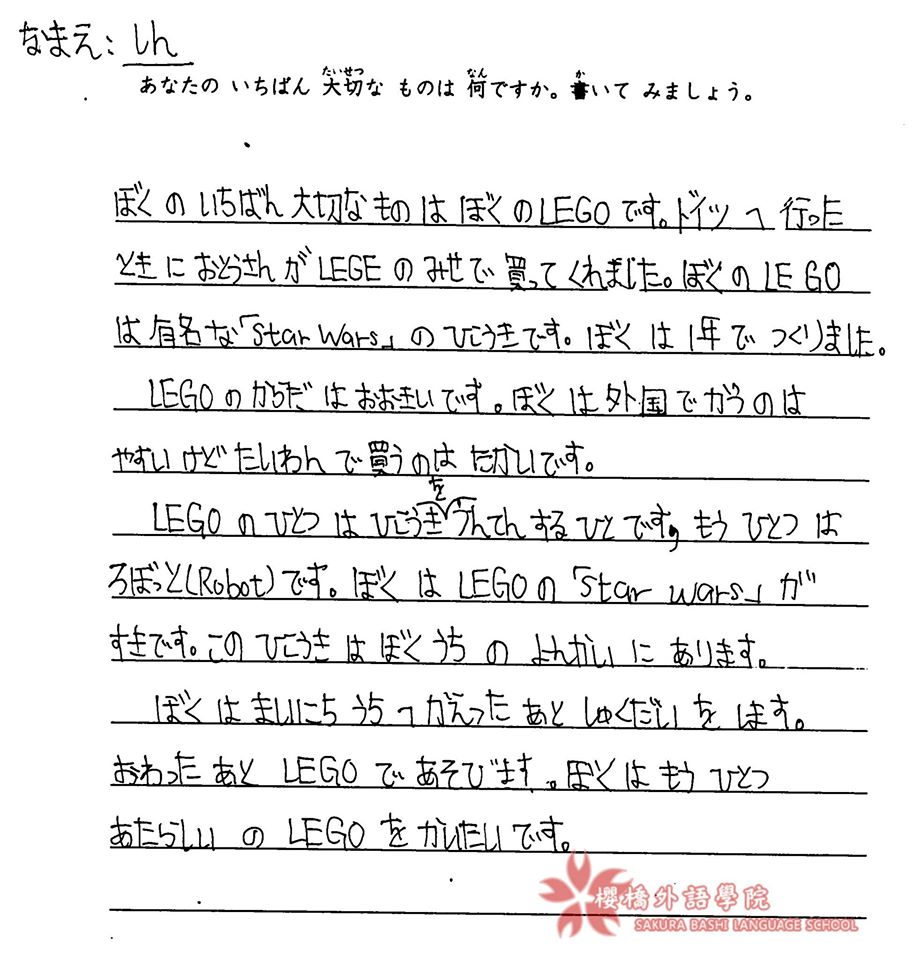 なまえ: しん
あなたの いちばん 大切な ものは 何ですか。書いて みましょう。
ぼくのいちばん大切なものはぼくのLEGOです。ドイツへ行った
ときにおとうさんがLEGEのみせで買ってくれました。ぼくのLEGO
は有名な「Star Wars」のひこうきです。ぼくは1年でつくりました。
LEGOのからだはおおきいです。ぼくは外国でがうのは
やすいけどたいわんで買うのはたかいです。
LEGOのひとつはひこうきをうんてんするひとです,もうひとつは
ろぼっと(Robot)です。ぼくはLEGOの「Star wars」が
すきです。このひこうきはぼくうちのよんかいにあります。
ぼくはまいにちうちへかえったあとしゅくだいをします。
おわったあとLEGOであそびます。ぼくはもうひとつ
あたらしいのLEGOをかいたいです。
櫻橋外語學院
SAKURA BASHI LANGUAGE SCHOOL